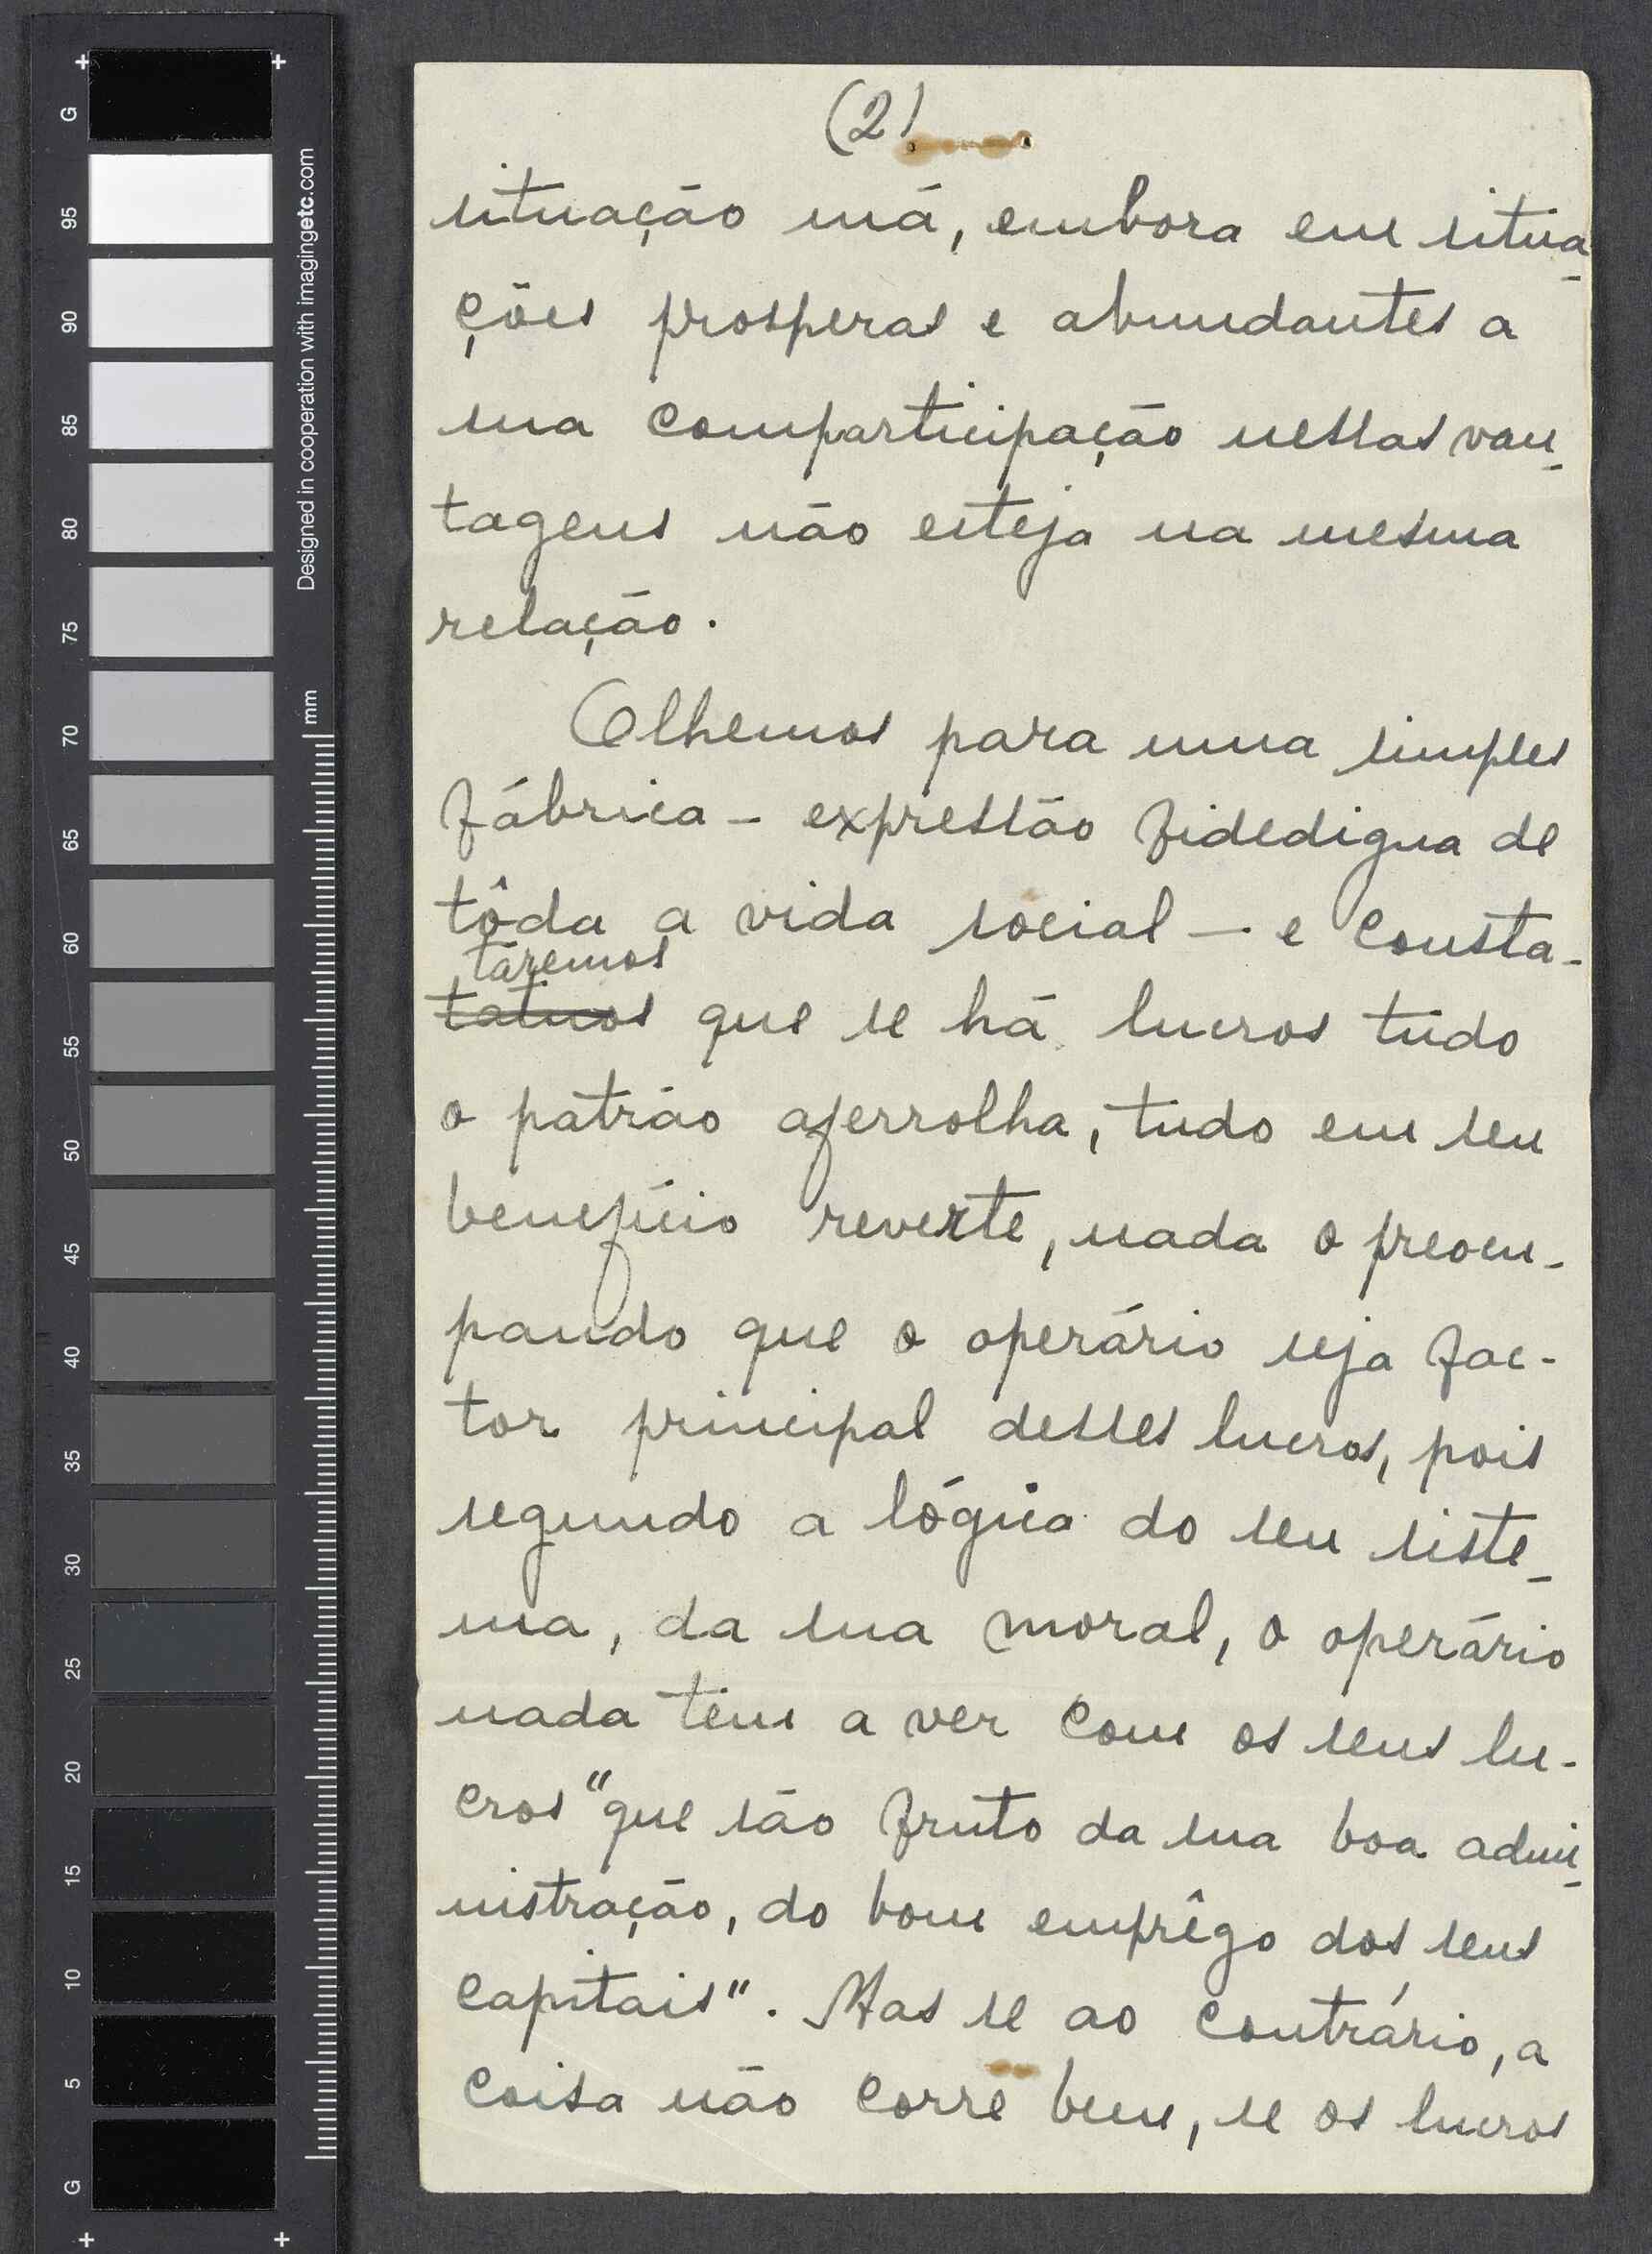 (2)
situação má, embora em situa-
ções prosperas e abundantes a
sua comparticipação nessas van-
tagens não esteja na mesma
relação.
Olhemos para uma simples
fábrica - expressão fidedigna de
tôda a vida social - e consta-
taremos
tatmos que se há lucros tudo
o patrão aferrolha, tudo em seu
benefício reverte, nada o preocu-
pando que o operário seja fac-
tor principal desses lucros, pois
segundo a lógica do seu siste-
ma, da sua moral, o operário
nada tem a ver com os seus lu-
cros "que são fruto da sua boa admi-
nistração, do bom emprêgo dos seus
capitais". Mas se ao contrário, a
coisa não corre bem, se os lucros
G
95
90
85
80
75
70
65
60
55
50
45
40
35
30
25
20
15
10
5
G
Designed in cooperation with imagingetc.com
mm